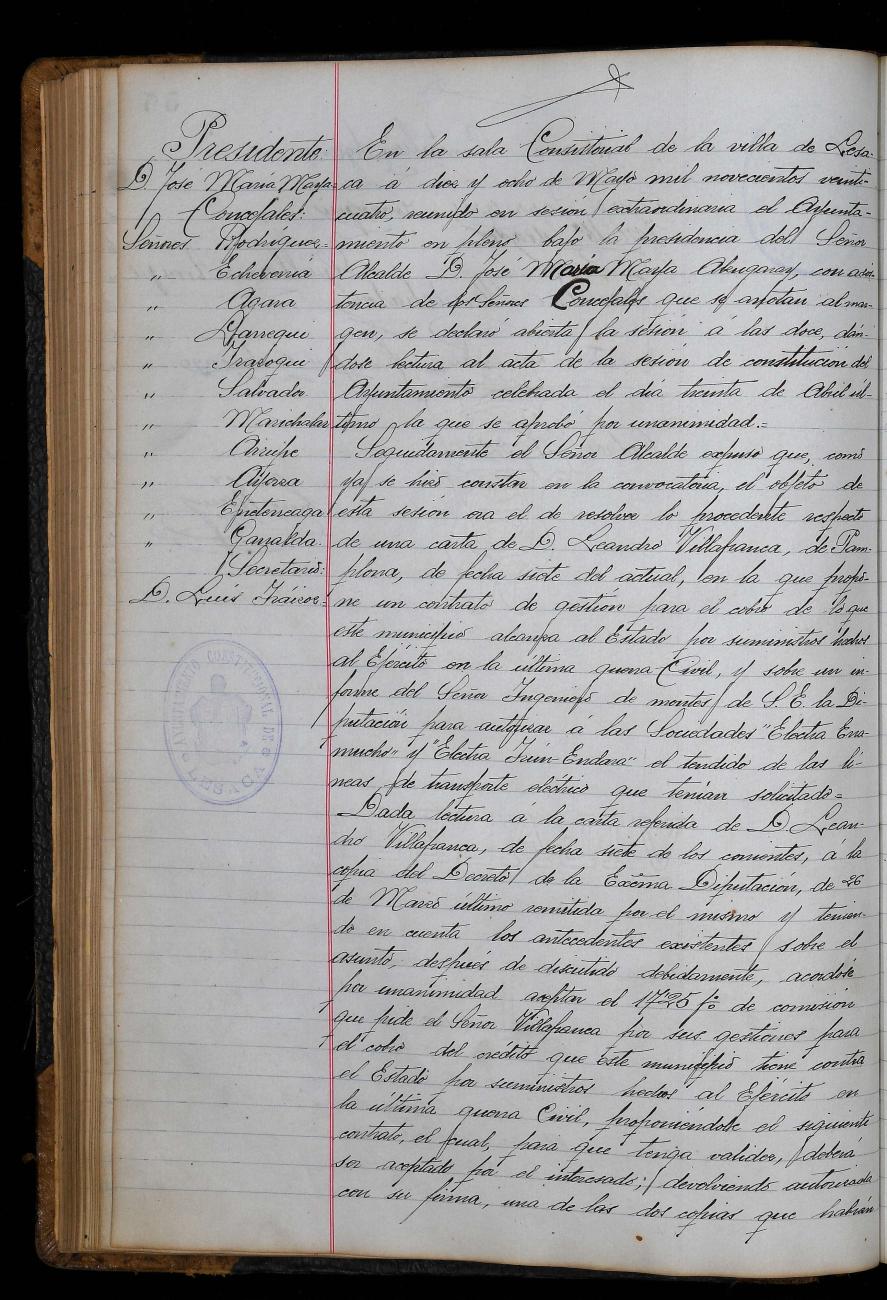 Presidente:
D. José María Maya
Concejales:
Señores Rodríguez=
" Echeverria
" Agara
" Larregui
" Irazoqui
" Salvador
" Marichalar
" Arrupe
" 
" Epeteneaga
" Garralda
Secretario:
D. Luis
AYUNTAMIENTO CONSTITUCIONAL DE LESACA
En la sala Consistorial de la villa de Lesa-
ca á diez y ocho de Mayo mil novecientos veinti-
cuatro, reunido en sesión extraordinaria el Ayunta-
miento en pleno bajo la presidencia del Señor
Alcalde D. José María Maya con asis-
tencia de los Señores Concejales que se anotan al mar-
gen, se declaró abierta la sesión á las doce, dán-
dose lectura al acta de la sesión de constitución del
Ayuntamiento celebrada el día treinta de Abril úl-
timo la que se aprobó por unanimidad.=
Seguidamente el Señor Alcalde expuso que, como
ya se hizo constar en la convocatoria, el objeto de
esta sesión era el de resolver lo procedente respecto
de una carta de D. Leandro Villafranca, de Pam-
plona, de fecha siete del actual, en la que propo-
ne un contrato de gestión para el cobro de lo que
este municipio alcanza al Estado por suministros hechos
al Ejército en la última guerra Civil, y sobre un in-
forme del Señor Ingeniero de montes de S. E. la Di-
putación para autorizar á las Sociedades "Electra
" y "Electra Irún-Endara" el tendido de las lí-
neas de transporte eléctrico que tenían solicitado=
Dada lectura á la carta referida de D. Lean-
dro Villafranca, de fecha siete de los corrientes, á la
copia del Decreto de la Excma Diputación, de 26
de Marzo último remitida por el mismo y tenien-
do en cuenta los antecedentes existentes sobre el
asunto, después de discutido debidamente, acordóse
por unanimidad aceptar el 17'25 % de comisión
que pide el Señor Villafranca por sus gestiones para
el cobro del crédito que este municipio tiene contra
el Estado por suministros hechos al Ejército en
la última guerra Civil, proponiéndole el siguiente
contrato, el cual, para que tenga validez, deberá
ser aceptado por el interesado; devolviendo autorizada
con su firma, una de las dos copias que habrán